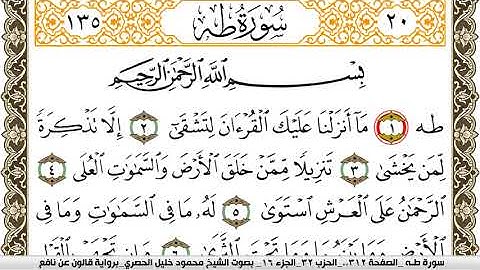 ٢٠ سُورَةُ طه ١٣٥
بِسْمِ اللَّهِ الرَّحْمَٰنِ الرَّحِيمِ
طه ١ مَآ أَنزَلْنَا عَلَيْكَ ٱلْقُرْءَانَ لِتَشْقَىٰٓ ٢ إِلَّا تَذْكِرَةً
لِّمَن يَخْشَىٰ ٣ تَنزِيلًا مِّمَّنْ خَلَقَ ٱلْأَرْضَ وَٱلسَّمَٰوَٰتِ ٱلْعُلَى ٤
ٱلرَّحْمَٰنُ عَلَى ٱلْعَرْشِ ٱسْتَوَىٰ ٥ لَهُۥ مَا فِى ٱلسَّمَٰوَٰتِ وَمَا فِى
ٱلْأَرْضِ وَمَا بَيْنَهُمَا وَمَا تَحْتَ
سورة طـه _الصفحة ٣١٢.. الحزب ٣٢_الجزء ١٦_ بصوت الشيخ محمود خليل الحصري_برواية قالون عن نافع